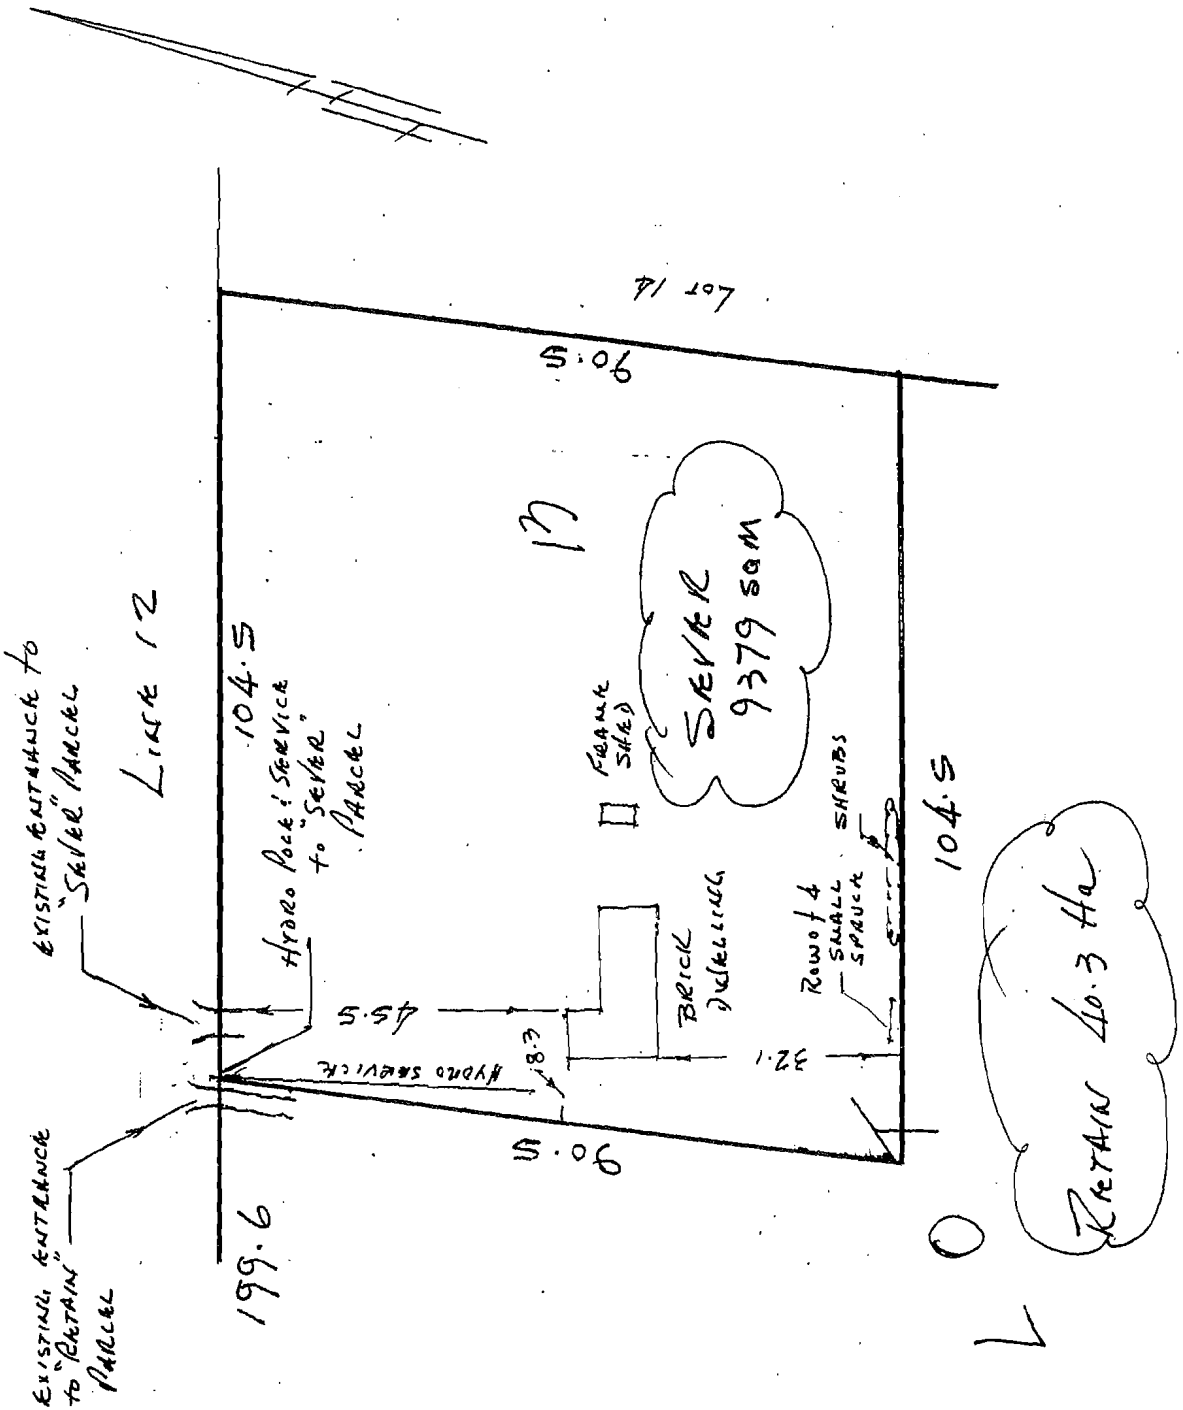 EXISTING ENTRANCE
to "RETAIN"
PARCEL
EXISTING ENTRANCE to
"SEVER" PARCEL
LINE 12
199.6
104.5
HYDRO POLE & SERVICE
to "SEVER"
PARCEL
HYDRO SERVICE
45.5
18.3
90.5
BRICK
DWELLING
FRAME
SHED
13
SEVER
9379 SQ M
90.5
LOT 14
32.1
ROW of 4
SMALL
SPRUCE
SHRUBS
104.5
L O
RETAIN 40.3 Ha